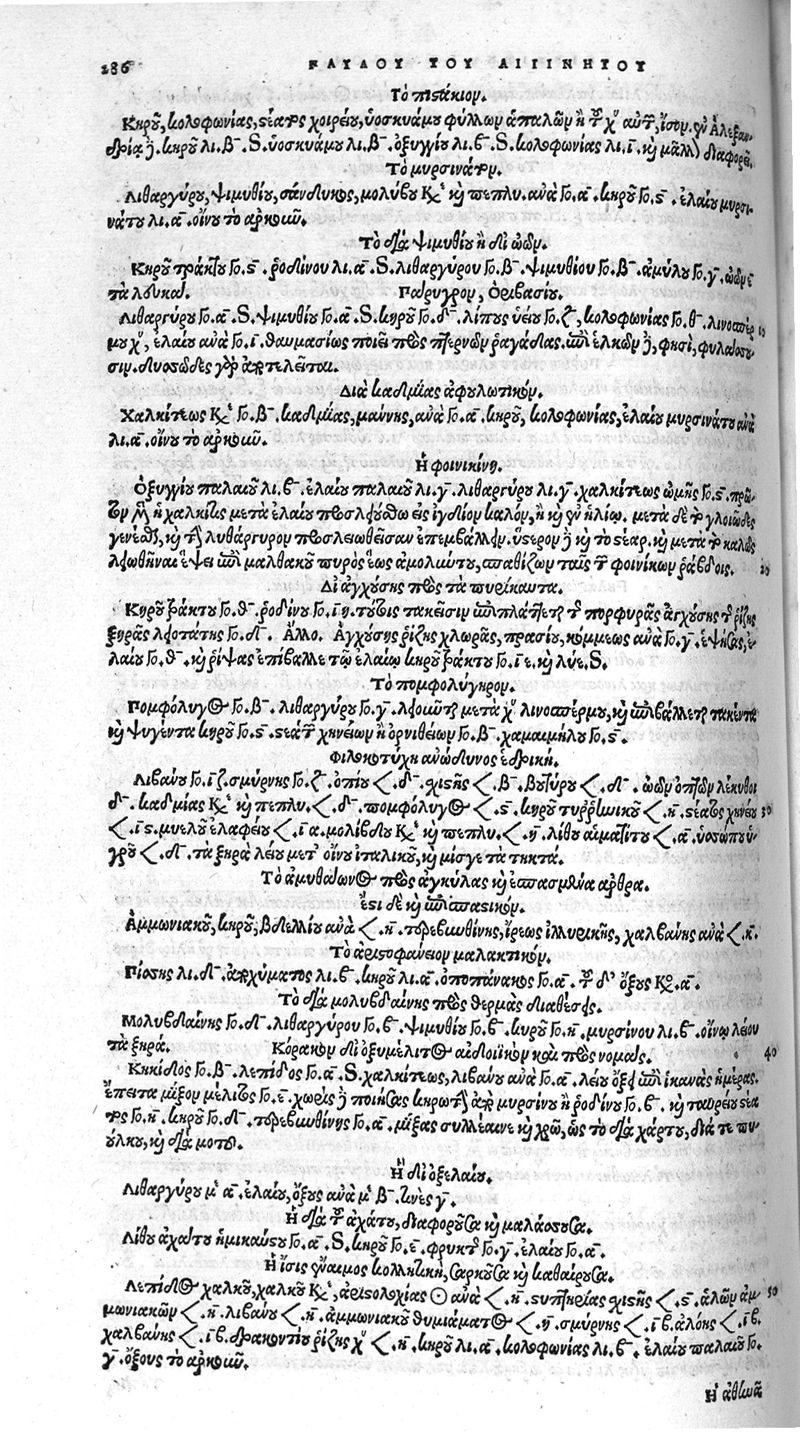 286 ΠΑΥΛΟΥ ΤΟΥ ΑΙΓΙΝΗΤΟΥ
Τὸ πιστάκιον.
Κηροῦ, κολοφωνίας, στέατος χοιρείου, ὑοσκυάμου φύλλων ἁπαλῶν ἢ τοῦ χυ αὐτοῦ, ἴσον. ἐν Ἀλεξαν-
δρίᾳ δὲ. κηροῦ λι. β. S. ὑοσκυάμου λι. β. ὀξυγγίου λι. ϐ. S. κολοφωνίας λι. ι. καὶ μᾶλλον διαφορεῖ.
Τὸ μυρσινάτον.
Λιθαργύρου, ψιμυθίου, σάνδυκος, μολύβου κε καὶ πεπλυ. ἀνὰ Γο. α. κηροῦ Γο. ς. ἐλαίου μυρσι-
νάτου λι. α. οἴνου τὸ ἀρκοῦν.
Τὸ διὰ ψιμυθίου ἢ δι ὠῶν.
Κηροῦ τράκτου Γο. ς. ῥοδίνου λι. α. S. λιθαργύρου Γο. β. ψιμυθίου Γο. β. ἀμύλου Γο. γ. ὠῶν ε
τὰ λευκά. Πάρυγρον, Ὀριβασίου.
Λιθαργύρου Γο. α. S. ψιμυθίου Γο. α. S. κηροῦ Γο. δ. λίπους ὑείου Γο. ζ. κολοφωνίας Γο. θ. λινοσπέρ 10
μου χυ, ἐλαίου ἀνὰ Γο. ι. θαυμασίως ποιεῖ πρὸς πτερνῶν ῥαγάδας. ἐπὶ ἑλκῶν δὲ, φησὶ, φυλάσσου-
σιν. δυσώδες γὰρ ἀποτελεῖται.
Διὰ καδμίας ἀφυλωτικόν.
Χαλκίτεως κε Γο. β. καδμίας, μάννης, ἀνὰ Γο. α. κηροῦ, κολοφωνίας, ἐλαίου μυρσινάτου ἀνὰ
λι. α. οἴνου τὸ ἀρκοῦν.
Ἡ φοινικίνη.
Ὀξυγγίου παλαιοῦ λι. ϐ. ἐλαίου παλαιοῦ λι. γ. λιθαργύρου λι. γ. χαλκίτεως ὠμῆς Γο. ς. πρῶ-
τον μὲν ἡ χαλκίτις μετὰ ἐλαίου προσλεούσθω εἰς ἰγδίον καλόν, ἢ καὶ ἐν ἡλίῳ. μετὰ δὲ τὸ γλοιῶδες
γενέσθαι, καὶ τὴν λυθάργυρον προσλειωθεῖσαν ἐπεμβάλλειν. ὕστερον δὲ καὶ τὸ στέαρ. καὶ μετὰ τὸ καλῶς
λειωθῆναι ἕψει ἐπὶ μαλθακοῦ πυρὸς ἕως ἀμολύντου, σπαθίζων ταῖς τῶν φοινίκων ῥάβδοις. 20
Δι ἀγχύσης πρὸς τὰ πυρίκαυτα.
Κηροῦ τράκτου Γο. θ. ῥοδίνου Γο. ιη. τούτοις τακεῖσιν ἐπιπλάττεται τῆς πορφυρᾶς ἀγχύσης τῆς ῥίζης
ξηρᾶς λειοτάτης Γο. δ. Ἄλλο. Ἀγχύσης ῥίζης χλωρᾶς, πρασίου, κόμμεως ἀνὰ Γο. γ. ἑψήσας, ἐ-
λαίου Γο. θ. καὶ ῥίψας ἐπίβαλλε τῷ ἐλαίῳ κηροῦ τράκτου Γο. ιε. καὶ λύε. S.
Τὸ πομφολύγηρον.
Πομφόλυγος Γο. β. λιθαργύρου Γο. γ. λειοῦται μετὰ χυ λινοσπέρμου, καὶ ἐπιβάλλεται τακέντα
καὶ ψυγέντα κηροῦ Γο. ς. στέατος χηνείων ἢ ὀρνιθείων Γο. β. χαμαιμήλου Γο. ς.
Φιλοκτύχη ἀνώδυνος ἑδρική.
Λιβάνου Γο. ιζ. σμύρνης Γο. ζ. ὀπίου &lt;. δ. σχιστῆς &lt;. β. βουτύρου &lt;. δ. ὠῶν ὀπτῶν λέκυθοι
δ. καδμίας κε καὶ πεπλυ. &lt;. δ. πομφόλυγος &lt;. ς. κηροῦ τυρρηνικοῦ &lt;. κ. στέατος χηνείου 30
&lt;. ις. μυελοῦ ἐλαφείου &lt;. ια. μολίβδου κε καὶ πεπλυ. &lt;. η. λίθου αἱματίτου &lt;. α. ὑσσώπου ὑ-
γροῦ &lt;. δ. τὰ ξηρὰ λείου μετ' οἴνου ἰταλικοῦ, καὶ μίσγε τὰ τηκτά.
Τὸ ἀμυθάωνος πρὸς ἀγκύλας καὶ ἐσπασμένα ἄρθρα.
ἔστι δὲ καὶ ἐπισπαστικόν.
Ἀμμωνιακοῦ, κηροῦ, βδελλίου ἀνὰ &lt;. κ. τερεβινθίνης, ἴρεως ἰλλυρικῆς, χαλβάνης ἀνὰ &lt;. κ.
Τὸ ἀριστοφάνειον μαλακτικόν.
Πίσσης λι. δ. ἀποχύματος λι. ϐ. κηροῦ λι. α. ὀποπάνακος Γο. α. τοῦ δ' ὄξους Κο. α.
Τὸ διὰ μολυβδαίνης πρὸς θερμὰς διαθέσεις.
Μολυβδαίνης Γο. δ. λιθαργύρου Γο. ϐ. ψιμυθίου Γο. ϐ. κυροῦ Γο. κ. μυρσίνου λι. ϐ. οἴνῳ λείου
τὰ ξηρά. Κόρακον δι ὀξυμέλιτος αἰδοιϊκὸν καὶ πρὸς νομάς. 40
Κηκίδος Γο. β. λεπίδος Γο. α. S. χαλκίτεως, λιβάνου ἀνὰ Γο. α. λείου ὄξει ἐπὶ ἱκανὰς ἡμέρας.
ἔπειτα μῖξον μέλιτος Γο. ε. χωρὶς δὲ ποιήσας κηρωτὴν ἀπὸ μυρσίνου ἢ ῥοδίνου Γο. ϐ. καὶ ταυρείου στέα
τος Γο. κ. κηροῦ Γο. δ. τερεβινθίνης Γο. α. μίξας συλλέαινε καὶ χρῶ, ὡς τὸ διὰ χάρτου, διά τε πυ-
ούλκου, καὶ διὰ μοτοῦ.
Ἡ δι ὀξελαίου.
Λιθαργύρου μ α. ἐλαίου, ὄξους ἀνὰ μ β. τινὲς γ.
Ἡ διὰ τοῦ ἀχάτου, διαφοροῦσα καὶ μαλάσσουσα.
Λίθου ἀχάτου ἡμικαύστου Γο. α. S. κηροῦ Γο. ε. φρυκτοῦ Γο. γ. ἐλαίου Γο. α.
Ἡ ἴσις ἔναιμος κολλητικὴ, σαρκοῦσα καὶ καθαίρουσα.
Λεπίδος χαλκοῦ, χαλκοῦ κε, ἀριστολοχίας ☉ ἀνὰ &lt;. κ. στυπτηρίας σχιστῆς &lt;. ς. ἁλῶν ἀμ- 50
μωνιακῶν &lt;. κ. λιβάνου &lt;. κ. ἀμμωνιακοῦ θυμιάματος &lt;. η. σμύρνης &lt;. ιβ. ἀλόης &lt;. ιβ.
χαλβάνης &lt;. ιβ. δρακοντίου ῥίζης χυ &lt;. κ. κηροῦ λι. α. κολοφωνίας λι. ϐ. ἐλαίου παλαιοῦ Γο.
γ. ὄξους τὸ ἀρκοῦν.
Ἡ ἀθηνᾶ